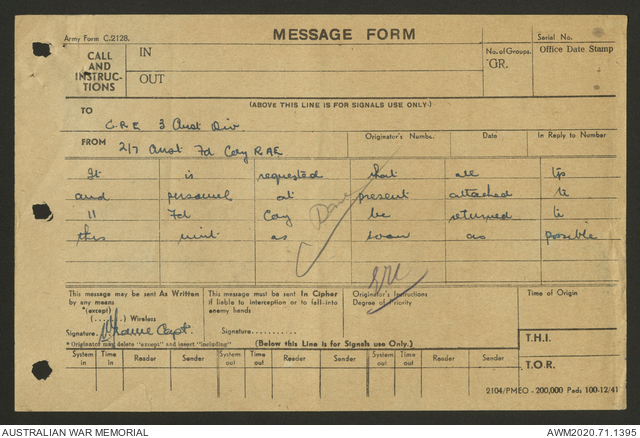 Army Form C.2128.
MESSAGE FORM
Serial No.
CALL AND INSTRUC-TIONS
IN
OUT
No. of Groups.
GR.
Office Date Stamp
(ABOVE THIS LINE IS FOR SIGNALS USE ONLY.)
TO
C.R.E 3 Aust Div.
FROM
2/7 Aust Fd Coy RAE
Originator's Number
Date
In Reply to Number
It is requested that all
and personnel at present attached to
11 Fd Coy be returned to
this unit as soon as possible
Done
This message may be sent As Written by any means
*(except)
(......) Wireless
Signature
Capt.
This message must be sent In Cipher if liable to interception or to fall into enemy hands
Signature...........
Originator's Instructions
Degree of Priority
Time of Origin
* Originator may delete "except" and insert "including"
(Below this Line is for Signals use Only.)
T.H.I.
T.O.R.
System in
Time in
Reader
Sender
System out
Time out
Reader
Sender
System out
Time out
Reader
Sender
2104/PMEO - 200,000 Pads 100-12/41
AUSTRALIAN WAR MEMORIAL
AWM2020.71.1395